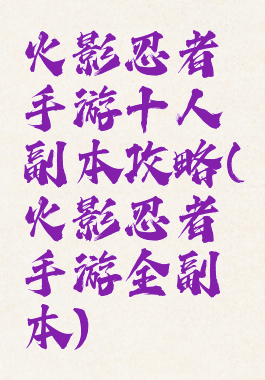 火影忍者
手游十人
副本攻略(
火影忍者
手游全副
本)